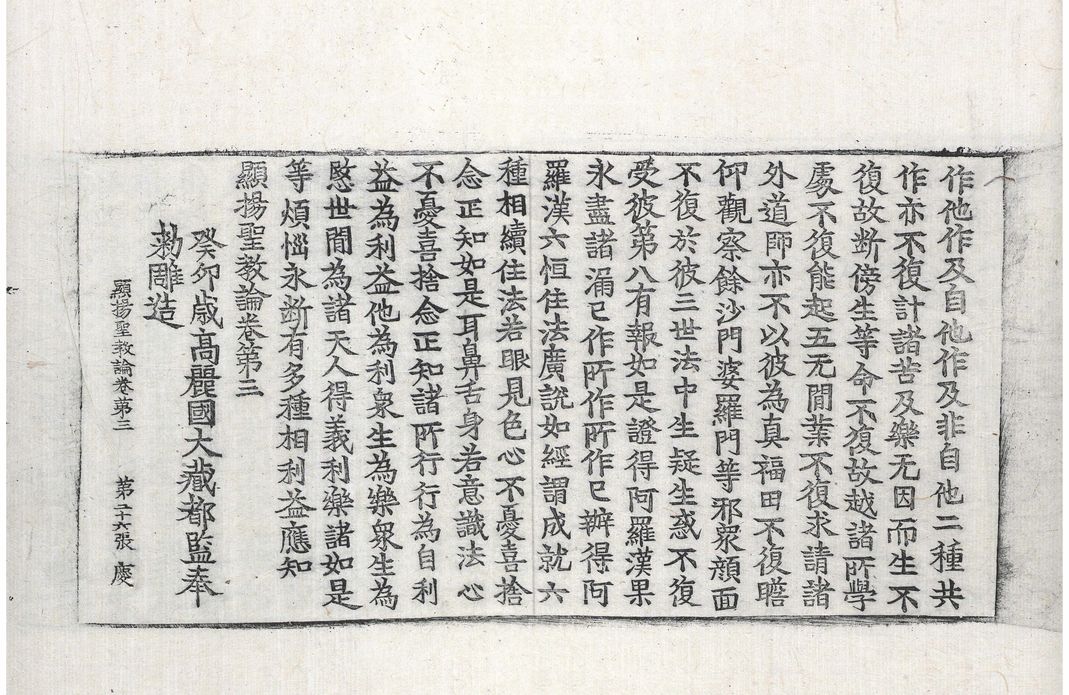 作他作及自他作及非自他二種共
作亦不復計諸苦及樂无因而生不
復故断傍生等命不復故越諸所學
處不復能起五无閒業不復求請諸
外道師亦不以彼為真福田不復瞻
仰觀察餘沙門婆羅門等邪衆顔面
不復於彼三世法中生疑生惑不復
受彼第八有報如是證得阿羅漢果
永盡諸漏已作所作所作已辦得阿
羅漢六恒住法廣說如經謂成就六
種相續住法若眼見色心不憂喜捨
念正知如是耳鼻舌身若意識法心
不憂喜捨念正知諸所行行為自利
益為利益他為利衆生為樂衆生為
愍世閒為諸天人得義利樂諸如是
等煩惱永断有多種相利益應知
顯揚聖教論卷第三
癸卯歲高麗國大藏都監奉
勑雕造
顯揚聖教論卷第三 第二十六張 慶